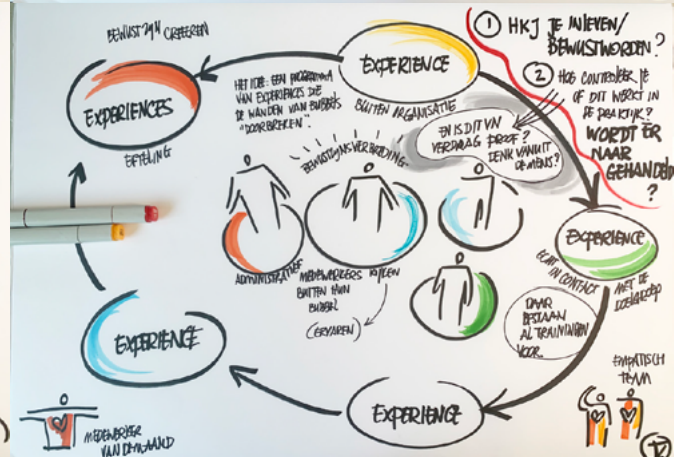 BEWUST ZIJN CREËEREN
EXPERIENCES
EFTELING
HET IDEE: EEN PROGRAMMA
VAN EXPERIENCES DIE
DE WANDEN VAN BUBBELS
"DOORBREKEN".
EXPERIENCE
BUITEN ORGANISATIE
1 HKJ JE INLEVEN/
BEWUSTWORDEN?
2 HOE CONTROLEER JE
OF DIT WERKT IN
DE PRAKTIJK?
WORDT ER
NAAR
GEHANDELD
?
EN IS DIT VN
VERDRAG PROOF?
DENK VANUIT
DE MENS?
BEWUSTZIJNSVERBREDING
ADMINISTRATIEF
MEDEWERKERS KIJKEN
BUITEN HUN
BUBBEL
(ERVAREN)
EXPERIENCE
ECHT
IN CONTACT
MET DE
DOELGROEP
DAAR
BESTAAN
AL TRAININGEN
VOOR.
EXPERIENCE
EXPERIENCE
MEDEWERKER
VAN DE MAAND
EMPATISCH
TEAM